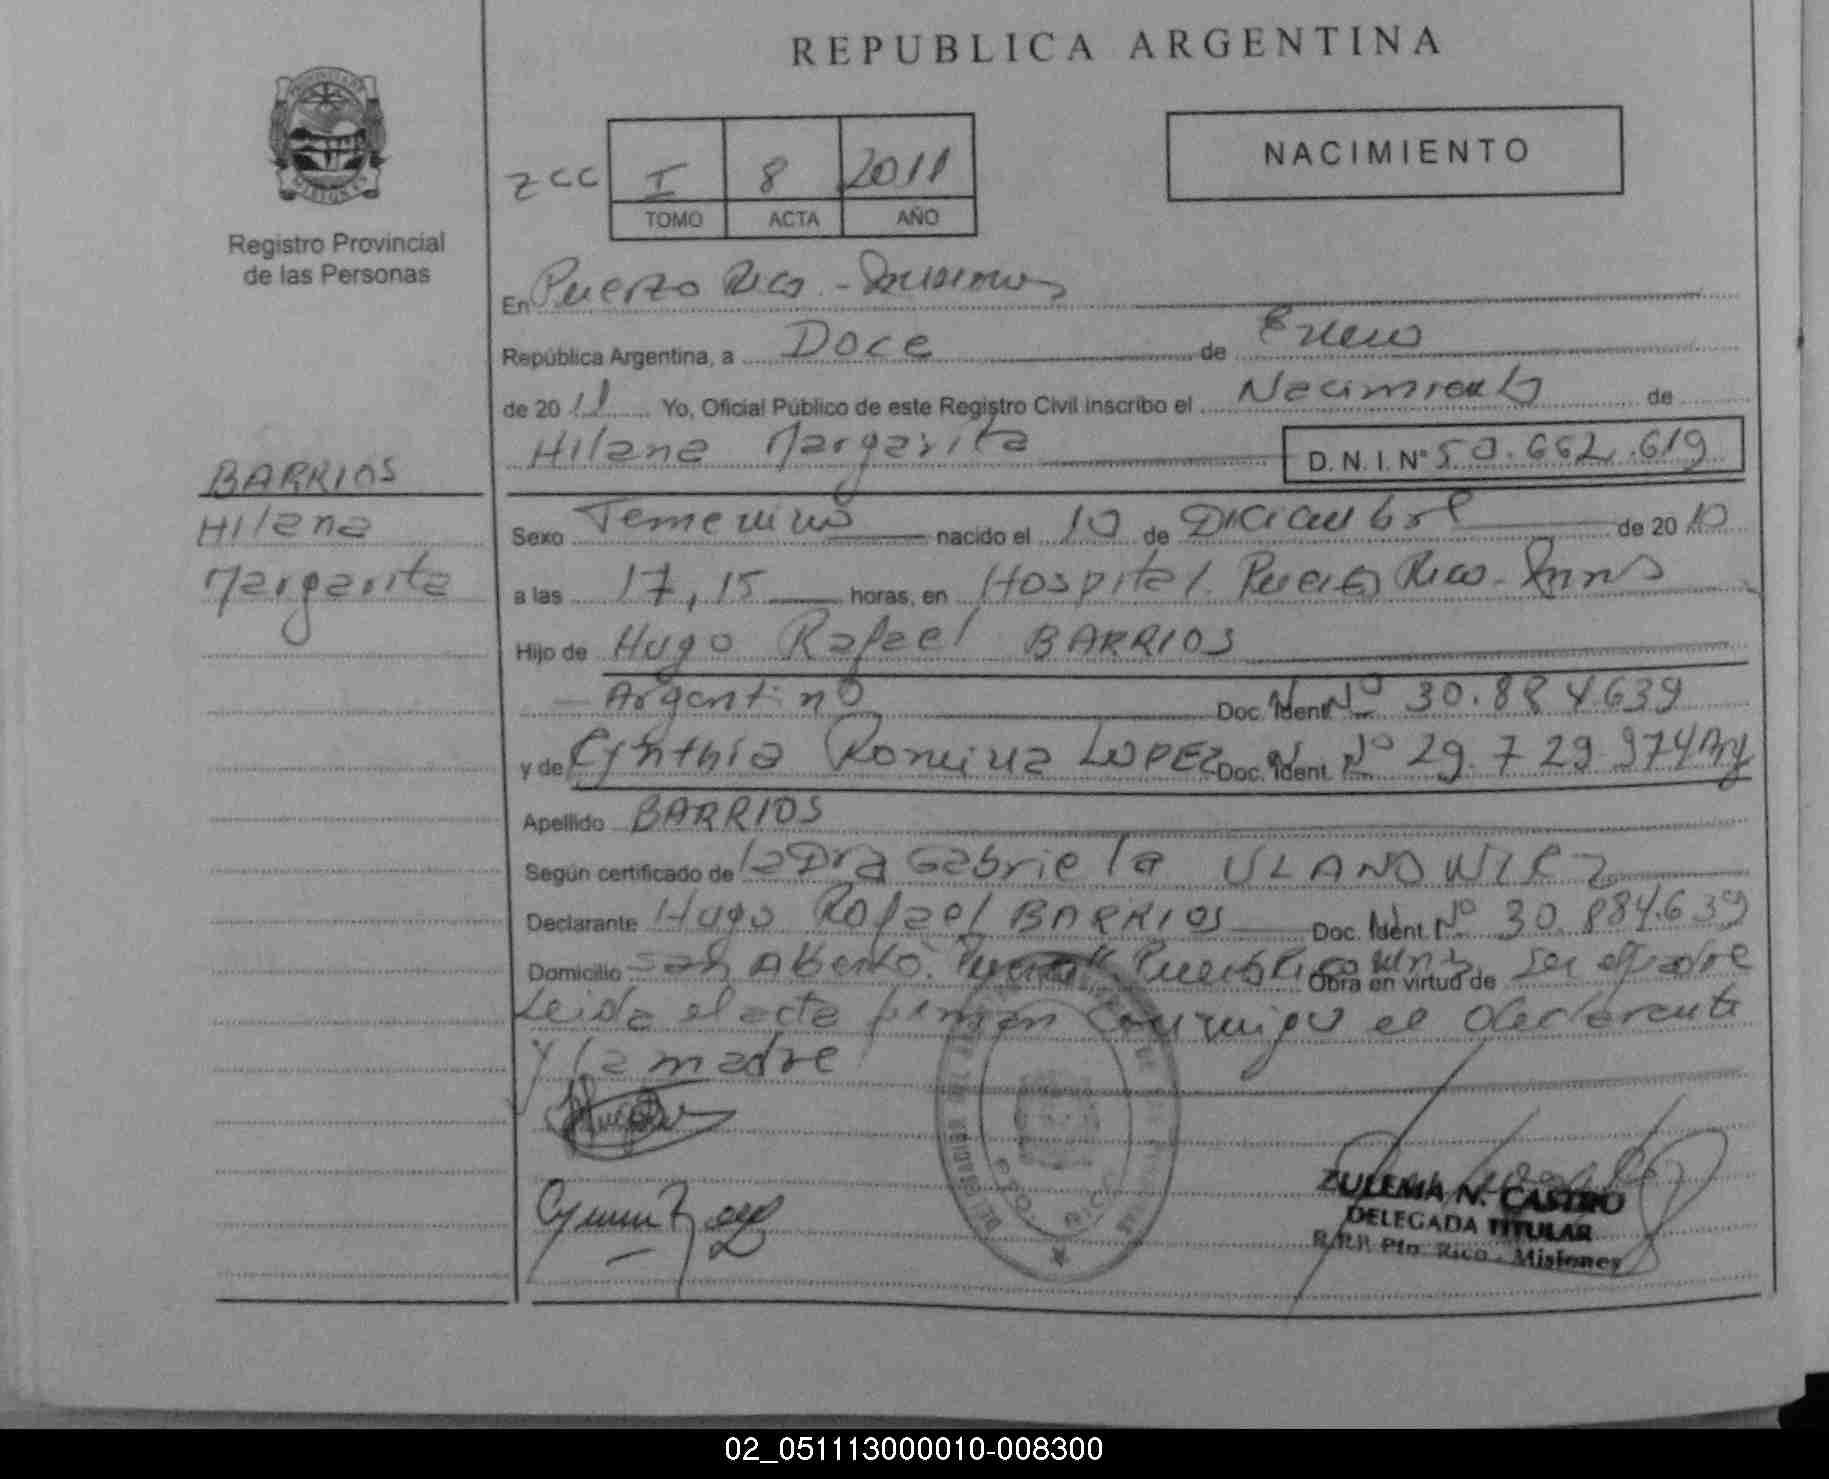 REPUBLICA ARGENTINA
PROVINCIA DE
MISIONES
Registro Provincial
de las Personas
NACIMIENTO
ZCC I 8 2011
TOMO ACTA AÑO
En Puerto Rico - Misiones
República Argentina, a Doce de Enero
de 2011 Yo, Oficial Público de este Registro Civil inscribo el Nacimiento de
Hilana Margarita D. N. I. N° 50.662.619
BARRIOS
Hilana
Margarita
Sexo Femenino nacido el 10 de Diciembre de 2010
a las 17,15 horas, en Hospital. Puerto Rico - Mnes
Hijo de Hugo Rafael BARRIOS
Argentino Doc. Ident. Nº 30.884639
y de Cynthia Romina LOPEZ Doc. Ident. Nº 29.729.974 Arg
Apellido BARRIOS
Según certificado de la Dra Gabriela ULANOWICZ
Declarante Hugo Rafael BARRIOS Doc. Ident. Nº 30.884.639
Domicilio San Alberto. Puerto Rico Mnes Obra en virtud de ser el padre
Leida el acta firman conmigo el declarante
y la madre
ZULEMA N. CASTRO
DELEGADA TITULAR
R.P.P. Pto. Rico - Misiones
02_051113000010-008300